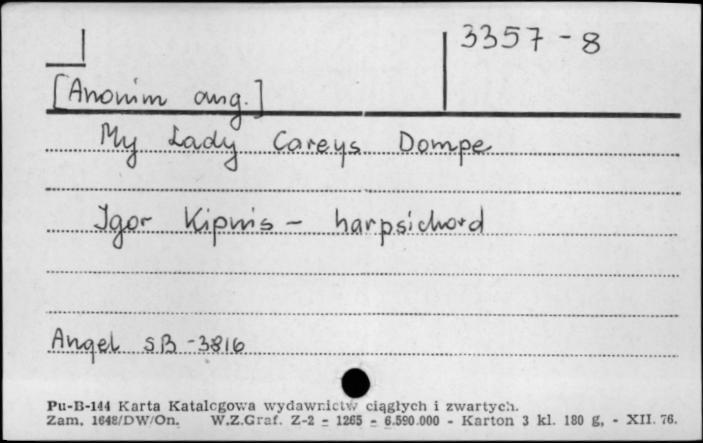 3357-8
[Anonim ang.]
My Lady Careys Dompe
Igor Kipnis - harpsichord
Angel SB-3816
Pu-B-144 Karta Katalogowa wydawnictw ciągłych i zwartych.
Zam. 1648/DW/On. W.Z.Graf. Z-2 - 1265 - 6.590.000 - Karton 3 kl. 180 g, - XII. 76.